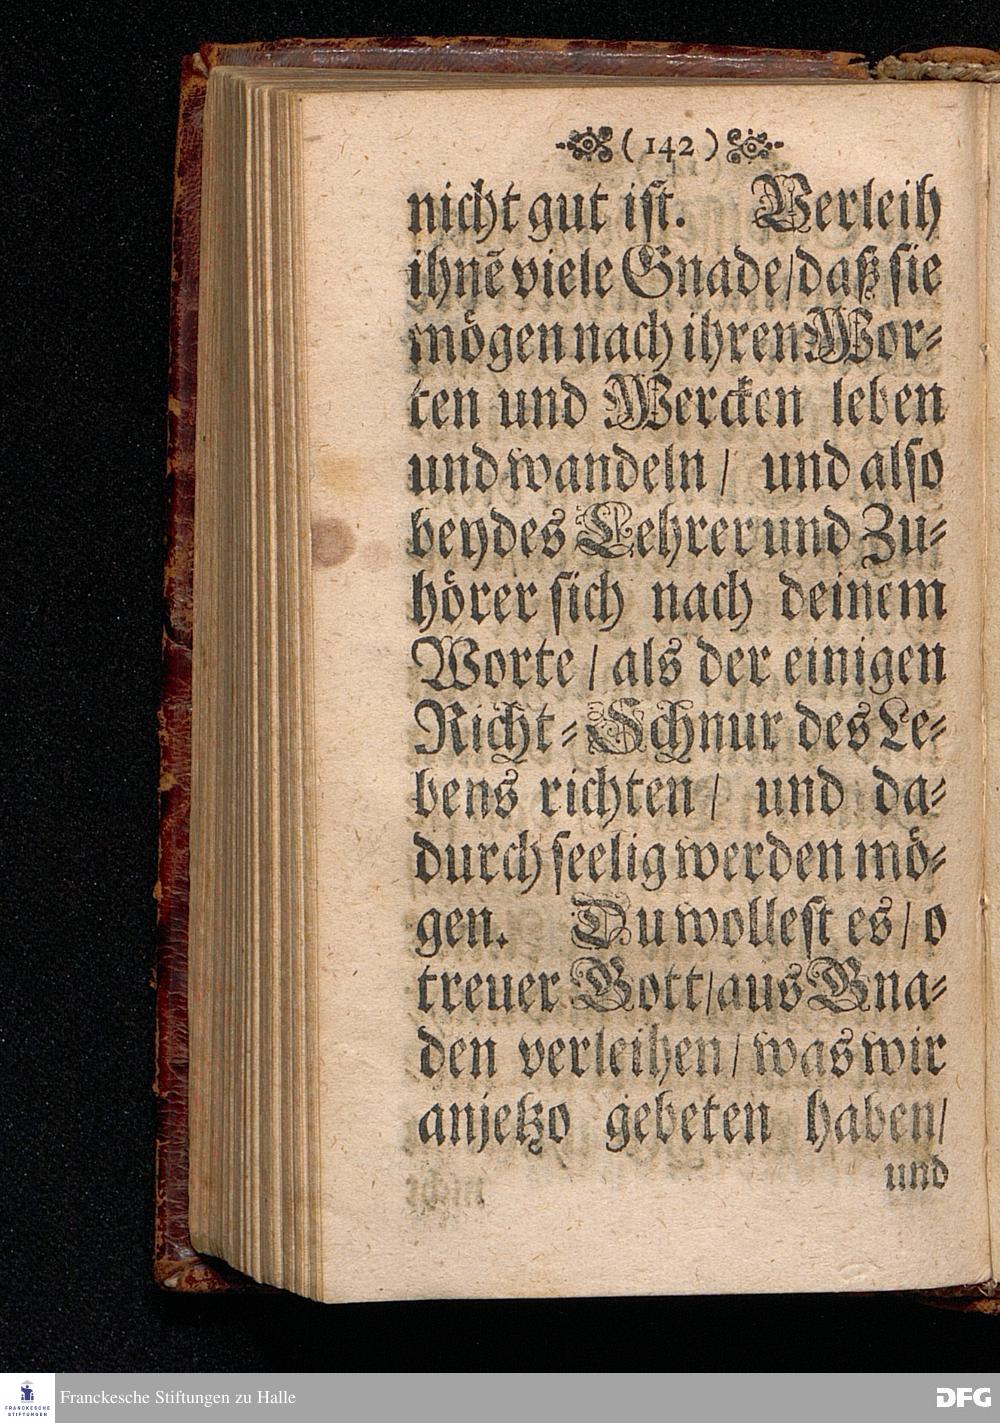 (142)
nicht gut ist. Verleih
ihnẽ viele Gnade/daß sie
mögen nach ihren Wor-
ten und Wercken leben
und wandeln/ und also
beydes Lehrer und Zu-
hörer sich nach deinem
Worte/ als der einigen
Richt-Schnur des Le-
bens richten/ und da-
durch seelig werden mö-
gen. Du wollest es/ o
treuer Gott/aus Gna-
den verleihen/ was wir
anjetzo gebeten haben/
und
FRANCKESCHE
STIFTUNGEN
Franckesche Stiftungen zu Halle
DFG